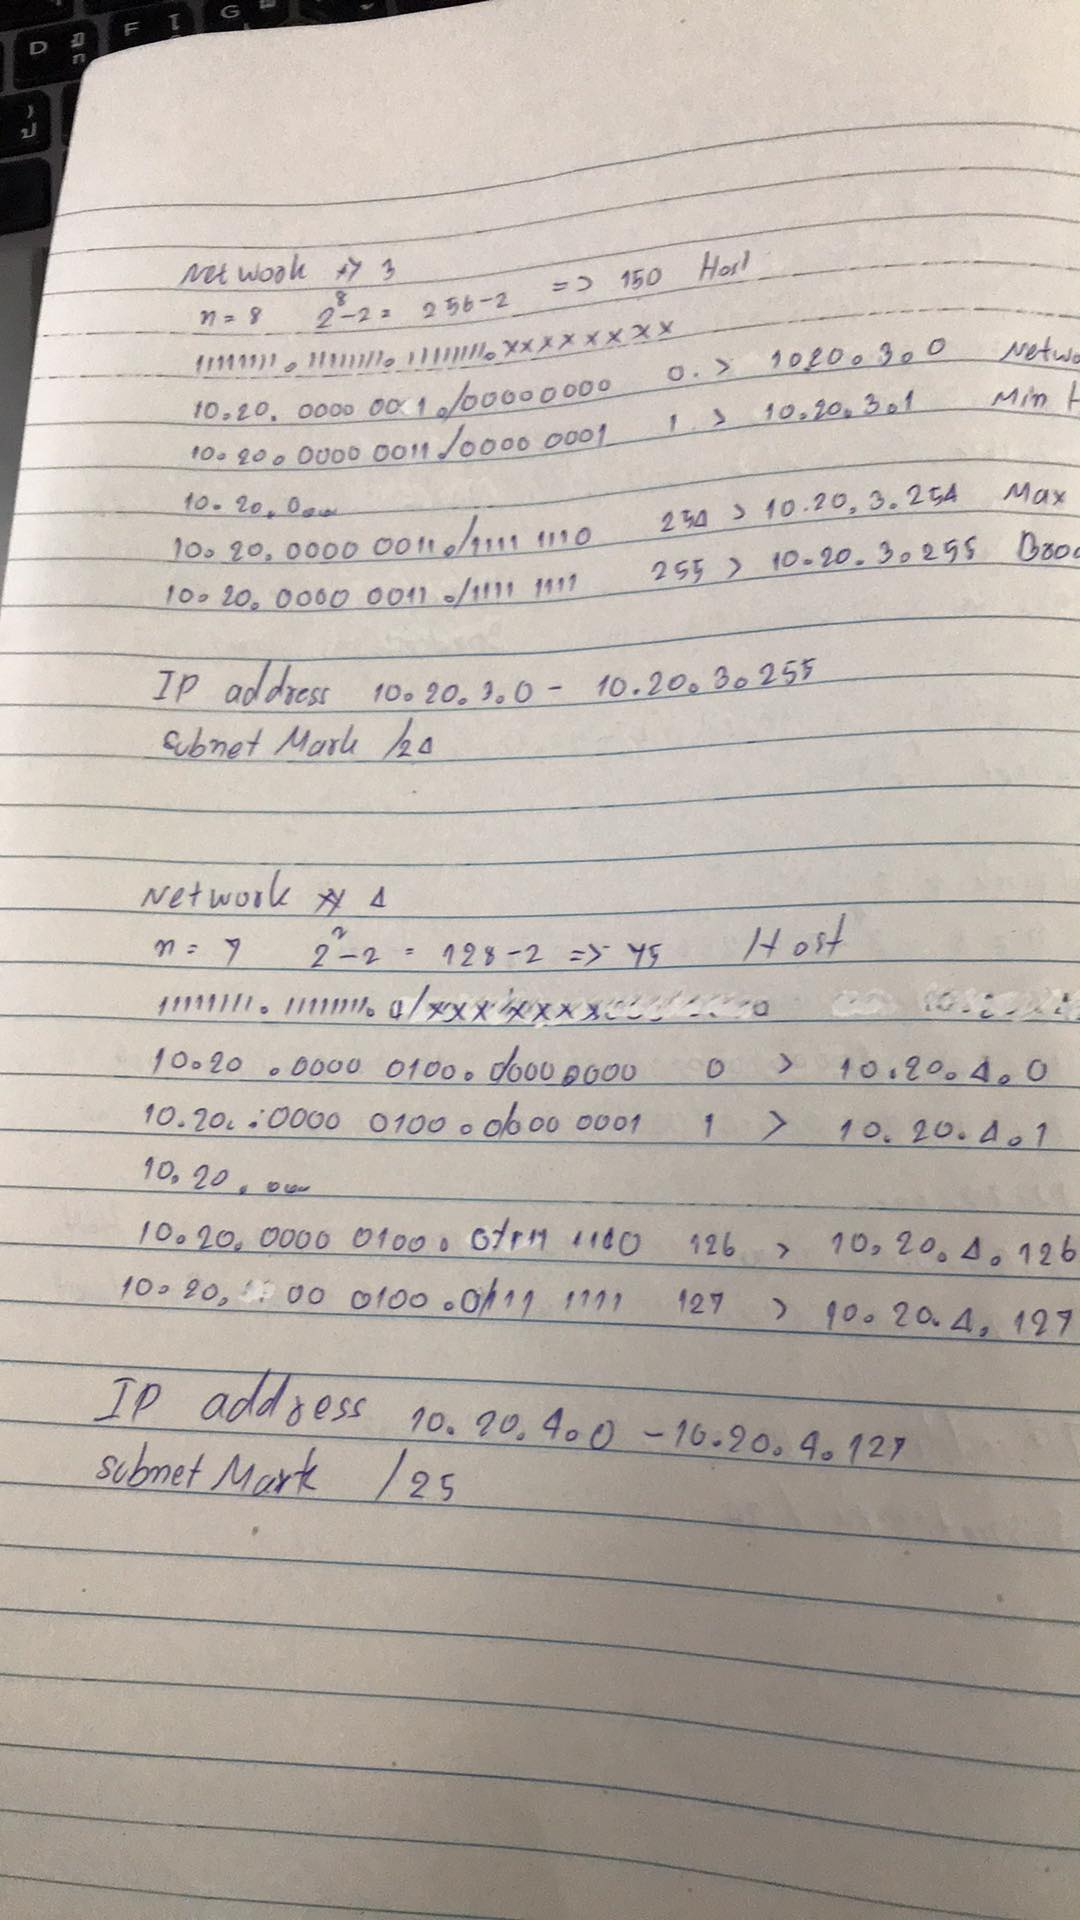 D ฏ ก F โ G
) ป
Network ที่ 3
n = 8 2^8-2 = 256-2 => 150 Host
11111111.11111111.11111111.xxxxxxxx
10.20.0000 0011./00000000 0. > 1020.3.0
10.20.0000 0011./0000 0001 1 > 10.20.3.1 Min
10.20.0
10.20.0000 0011./1111 1110 254 > 10.20.3.254 Max
10.20.0000 0011./1111 1111 255 > 10.20.3.255
IP address 10.20.3.0 - 10.20.3.255
subnet Mark /24
Network ที่ 4
n = 7 2^7-2 = 128-2 => 75 Host
11111111.11111111.0/xxxxxxx
10.20.0000 0100.0/000 0000 0 > 10.20.4.0
10.20.:0000 0100.0/000 0001 1 > 10.20.4.1
10.20.0
10.20.0000 0100.0/111 1110 126 > 10.20.4.126
10.20. 00 0100.0/111 1111 127 > 10.20.4.127
IP address 10.20.4.0 - 10.20.4.127
subnet Mark /25